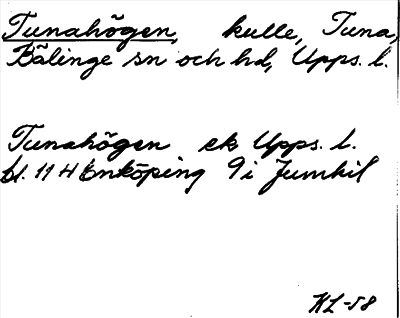 Tunahögen, kulle, Tuna,
Bälinge sn och hd, Upps. l.
Tunahögen ek Upps. l.
bl. 11 H Enköping 9 i Jumkil
HL-58